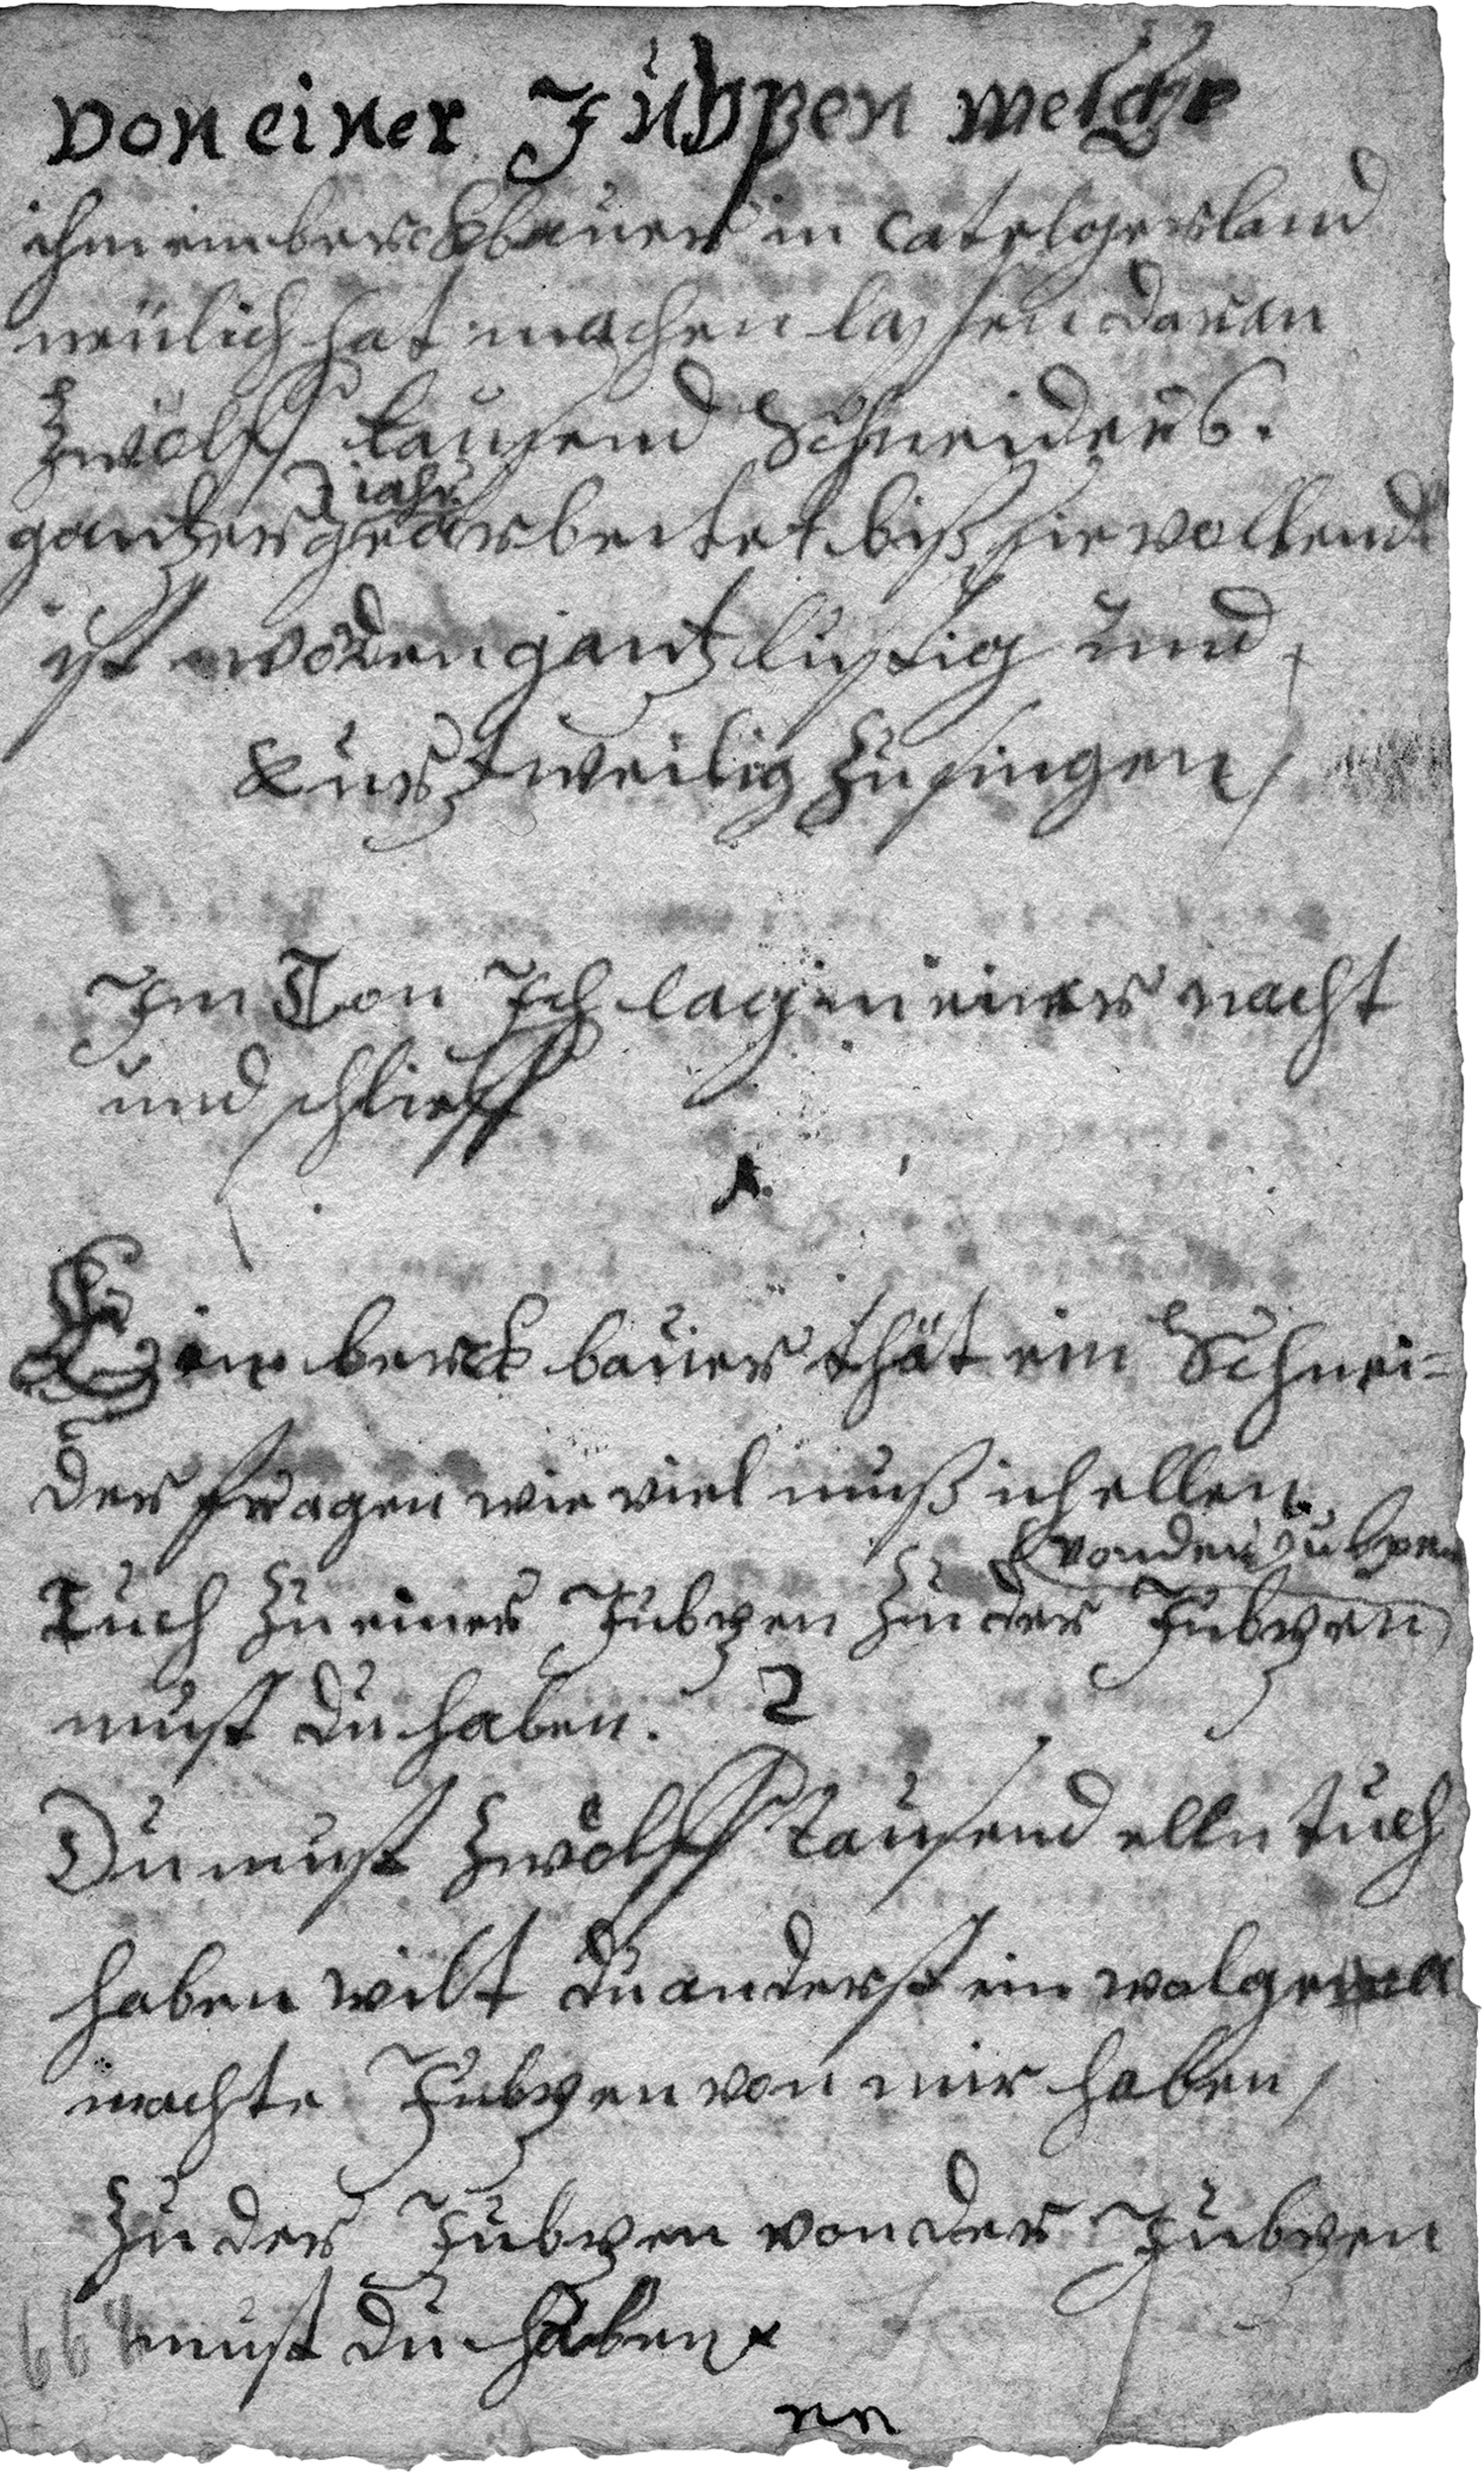 Von einer Jübpen welche
ihm ein berckbauer in Catelgersland
neülich hat machen lassen daran
Zwölff tausend Schneider 6.
gantzer jahr gearbeitet biß sie vollend
ist worden gantz lustig und
kurtzweilig zu singen /
Im Ton Ich lag in einer nacht
und schlieff
1.
Ein berck bauer thät ein Schnei=
der fragen wie viel muß ich ellen
von der Jubpen
Tuch zu einer Jubpen zu der Jubpen
must du haben. 2
Du must Zwölff tausend elln tuch
haben wilt du anderst ein wolge
machte Jubpen von mir haben /
Zu der Jubpen von der Jubpen
must du haben
664